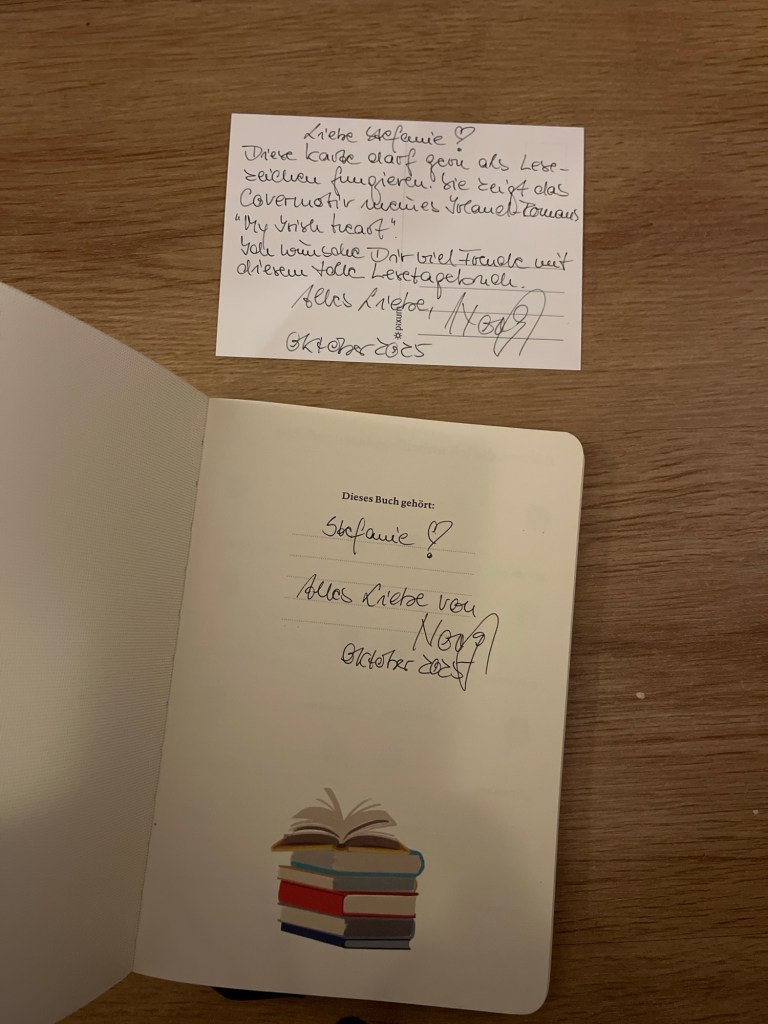 Liebe Stefanie!
Diese Karte darf gern als Lese-
zeichen fungieren. Sie zeigt das
Covermotiv meines Irland-Romans
"My Irish heart".
Ich wünsche Dir viel Freude mit
diesem tolle Lesetagebuch.
Alles Liebe,
pixum
Oktober 2025
Dieses Buch gehört:
Stefanie!
Alles Liebe von
Oktober 2025